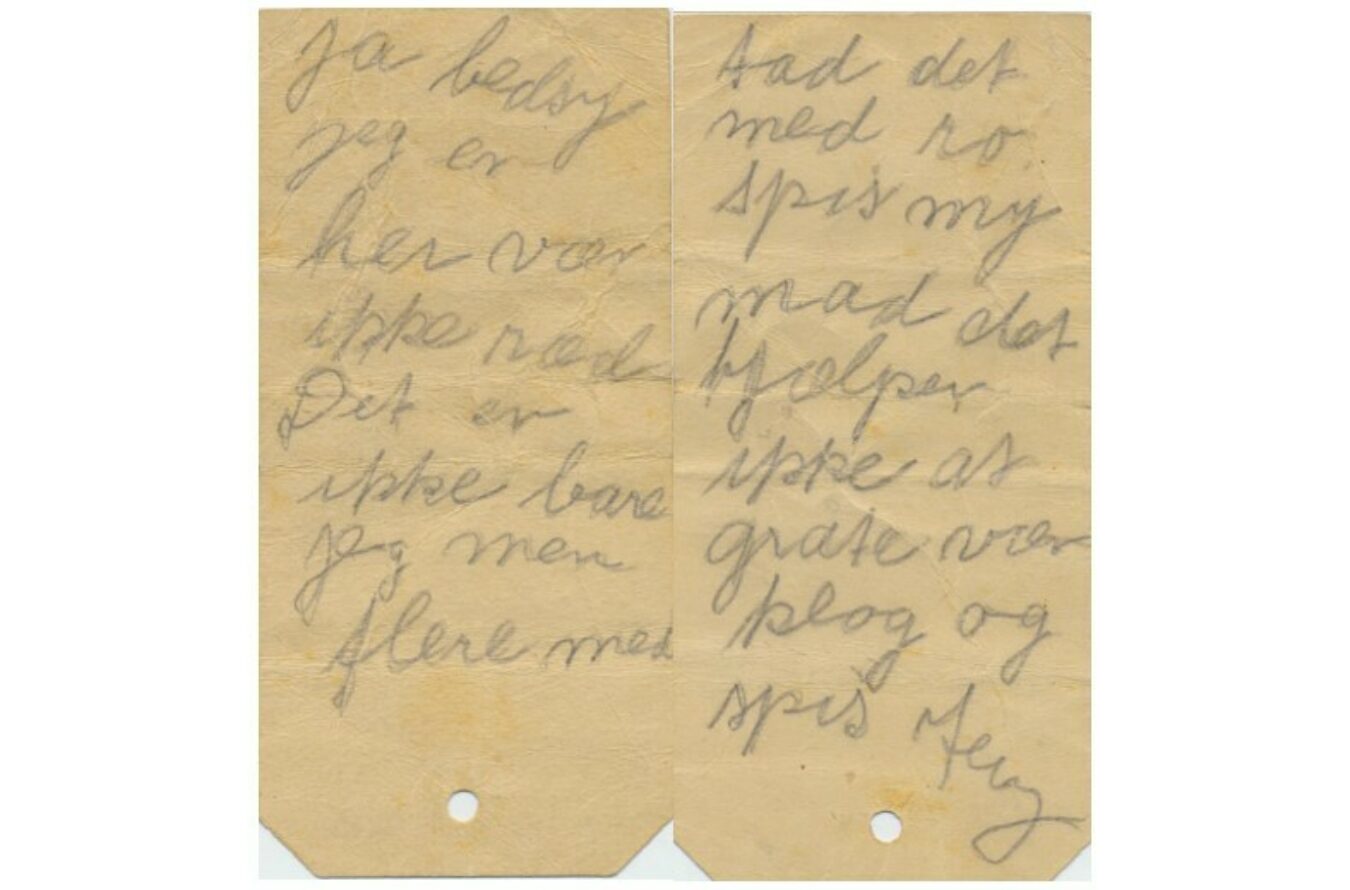 Ja bedsy
jeg er
her vær
ikke ræd
Det er
ikke bare
jeg men
flere med
tad det
med ro
spis my
mad det
hjælper
ikke at
gråte vær
klog og
spis